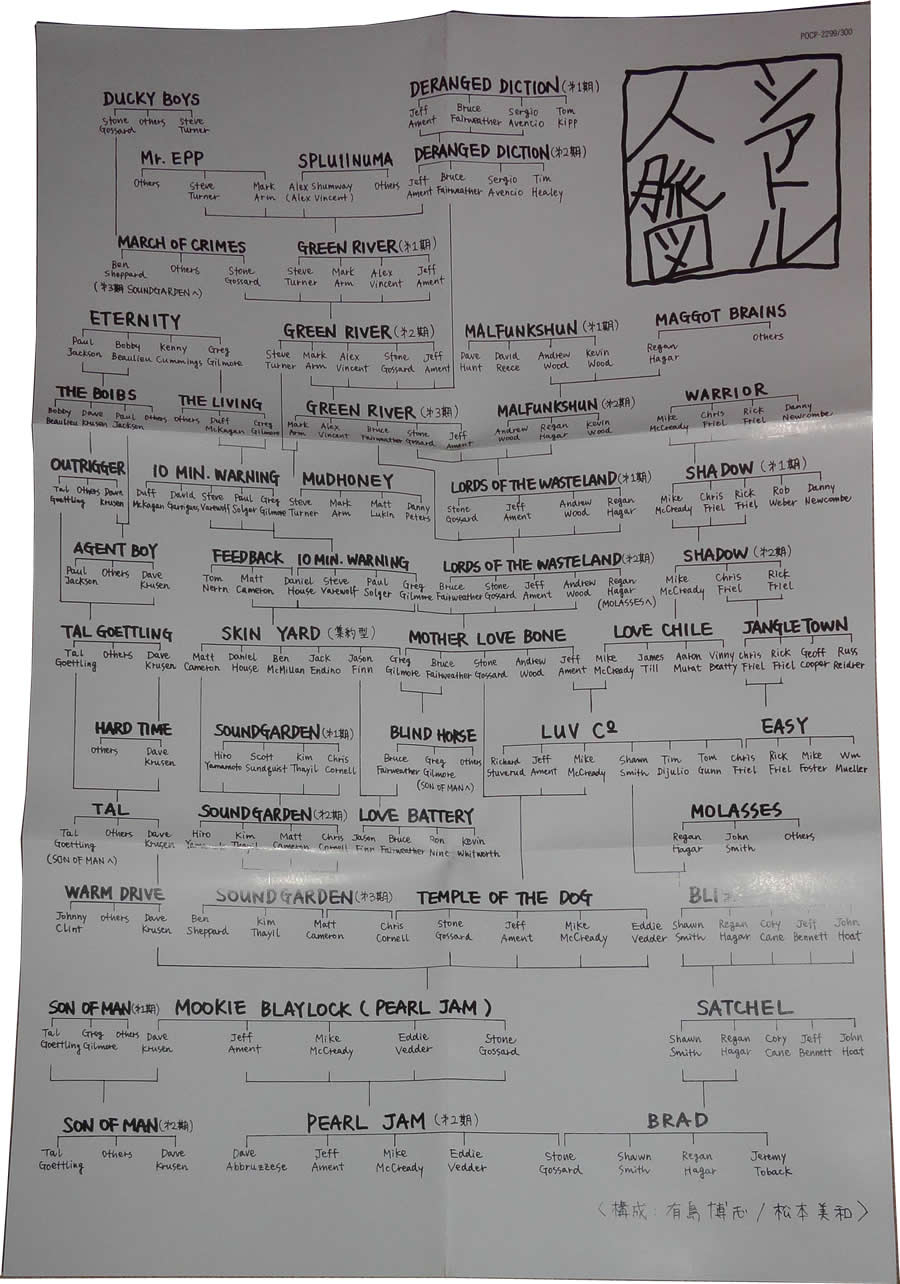 POCP-2299/300
シアトル
人脈図
DUCKY BOYS
Stone Gossard Others Steve Turner
DERANGED DICTION(第1期)
Jeff Ament Bruce Fairweather Sergio Avencio Tom Kipp
Mr. EPP
Others Steve Turner Mark Arm
SPLUIINUMA
Alex Shumway (Alex Vincent) Others
DERANGED DICTION(第2期)
Jeff Ament Bruce Fairweather Sergio Avencio Tim Healey
MARCH OF CRIMES
Ben Sheppard Others Stone Gossard
(第3期 SOUNDGARDENへ)
GREEN RIVER(第1期)
Steve Turner Mark Arm Alex Vincent Jeff Ament
ETERNITY
Paul Jackson Bobby Beaulieu Kenny Cummings Greg Gilmore
GREEN RIVER(第2期)
Steve Turner Mark Arm Alex Vincent Stone Gossard Jeff Ament
MALFUNKSHUN(第1期)
Dave Hunt David Reece Andrew Wood Kevin Wood
MAGGOT BRAINS
Regan Hagar Others
THE BOIBS
Bobby Beaulieu Dave Krusen Paul Jackson Others
THE LIVING
Others Duff McKagan Greg Gilmore
GREEN RIVER(第3期)
Mark Arm Alex Vincent Bruce Fairweather Stone Gossard Jeff Ament
MALFUNKSHUN(第2期)
Andrew Wood Regan Hagar Kevin Wood
WARRIOR
Mike McCready Chris Friel Rick Friel Danny Newcombe
OUTRIGGER
Tal Goettling Others Dave Krusen
10 MIN. WARNING
Duff McKagan David Garrigues, Steve Varewolf Paul Solger Greg Gilmore
MUDHONEY
Steve Turner Mark Arm Matt Lukin Danny Peters
LORDS OF THE WASTELAND(第1期)
Stone Gossard Jeff Ament Andrew Wood Regan Hagar
SHADOW(第1期)
Mike McCready Chris Friel Rick Friel Rob Weber Danny Newcombe
AGENT BOY
Paul Jackson Others Dave Krusen
FEEDBACK
Tom Nerrn Matt Cameron Daniel House
10 MIN. WARNING
Steve Varewolf Paul Solger Greg Gilmore
LORDS OF THE WASTELAND(第2期)
Bruce Fairweather Stone Gossard Jeff Ament Andrew Wood Regan Hagar
(MOLASSESへ)
SHADOW(第2期)
Mike McCready Chris Friel Rick Friel
TAL GOETTLING
Tal Goettling Others Dave Krusen
SKIN YARD(集約型)
Matt Cameron Daniel House Ben McMillan Jack Endino Jason Finn
MOTHER LOVE BONE
Greg Gilmore Bruce Fairweather Stone Gossard Andrew Wood Jeff Ament
LOVE CHILE
Mike McCready James Till Aaron Murat Vinny Beatty
JANGLETOWN
Chris Friel Rick Friel Geoff Cooper Russ Reidrer
HARD TIME
Others Dave Krusen
SOUNDGARDEN(第1期)
Hiro Yamamoto Scott Sundquist Kim Thayil Chris Cornell
BLIND HORSE
Bruce Fairweather Greg Gilmore Others
(SON OF MANへ)
LUV Co
Richard Stuverud Jeff Ament Mike McCready Shawn Smith Tim Dijulio Tom Gunn Chris Friel
EASY
Rick Friel Mike Foster Wm Mueller
TAL
Tal Goettling Others Dave Krusen
(SON OF MANへ)
SOUNDGARDEN(第2期)
Hiro Yamamoto Kim Thayil Matt Cameron Chris Cornell
LOVE BATTERY
Jason Finn Bruce Fairweather Ron Nine Kevin Whitworth
MOLASSES
Regan Hagar John Smith Others
WARM DRIVE
Johnny Clint Others Dave Krusen
SOUNDGARDEN(第3期)
Ben Sheppard Kim Thayil Matt Cameron
TEMPLE OF THE DOG
Chris Cornell Stone Gossard Jeff Ament Mike McCready Eddie Vedder
Shawn Smith Regan Hagar Cory Cane Jeff Bennett John Hoat
SON OF MAN(第1期)
Tal Goettling Greg Gilmore Others Dave Krusen
MOOKIE BLAYLOCK (PEARL JAM)
Jeff Ament Mike McCready Eddie Vedder Stone Gossard
SATCHEL
Shawn Smith Regan Hagar Cory Cane Jeff Bennett John Hoat
SON OF MAN(第2期)
Tal Goettling Others Dave Krusen
PEARL JAM(第2期)
Dave Abbruzzese Jeff Ament Mike McCready Eddie Vedder Stone Gossard
BRAD
Shawn Smith Regan Hagar Jeremy Toback
〈構成:有島博志/松本美和〉